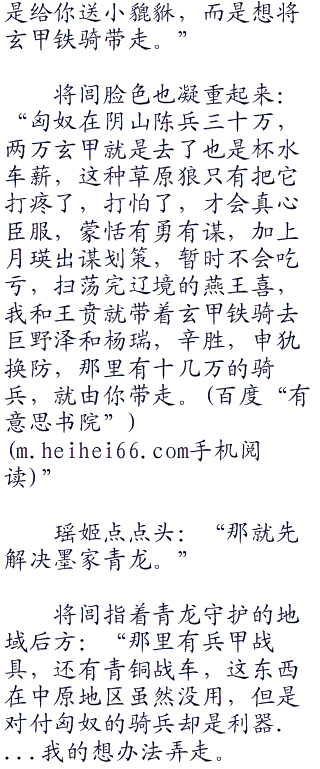 是给你送小貔貅，而是想将
玄甲铁骑带走。”
将闾脸色也凝重起来：
“匈奴在阴山陈兵三十万，
两万玄甲就是去了也是杯水
车薪，这种草原狼只有把它
打疼了，打怕了，才会真心
臣服，蒙恬有勇有谋，加上
月瑛出谋划策，暂时不会吃
亏，扫荡完辽境的燕王喜，
我和王贲就带着玄甲铁骑去
巨野泽和杨瑞，辛胜，申犰
换防，那里有十几万的骑
兵，就由你带走。(百度“有
意思书院”)
(m.heihei66.com手机阅
读)”
瑶姬点点头：“那就先
解决墨家青龙。”
将闾指着青龙守护的地
域后方：“那里有兵甲战
具，还有青铜战车，这东西
在中原地区虽然没用，但是
对付匈奴的骑兵却是利器.
...我的想办法弄走。